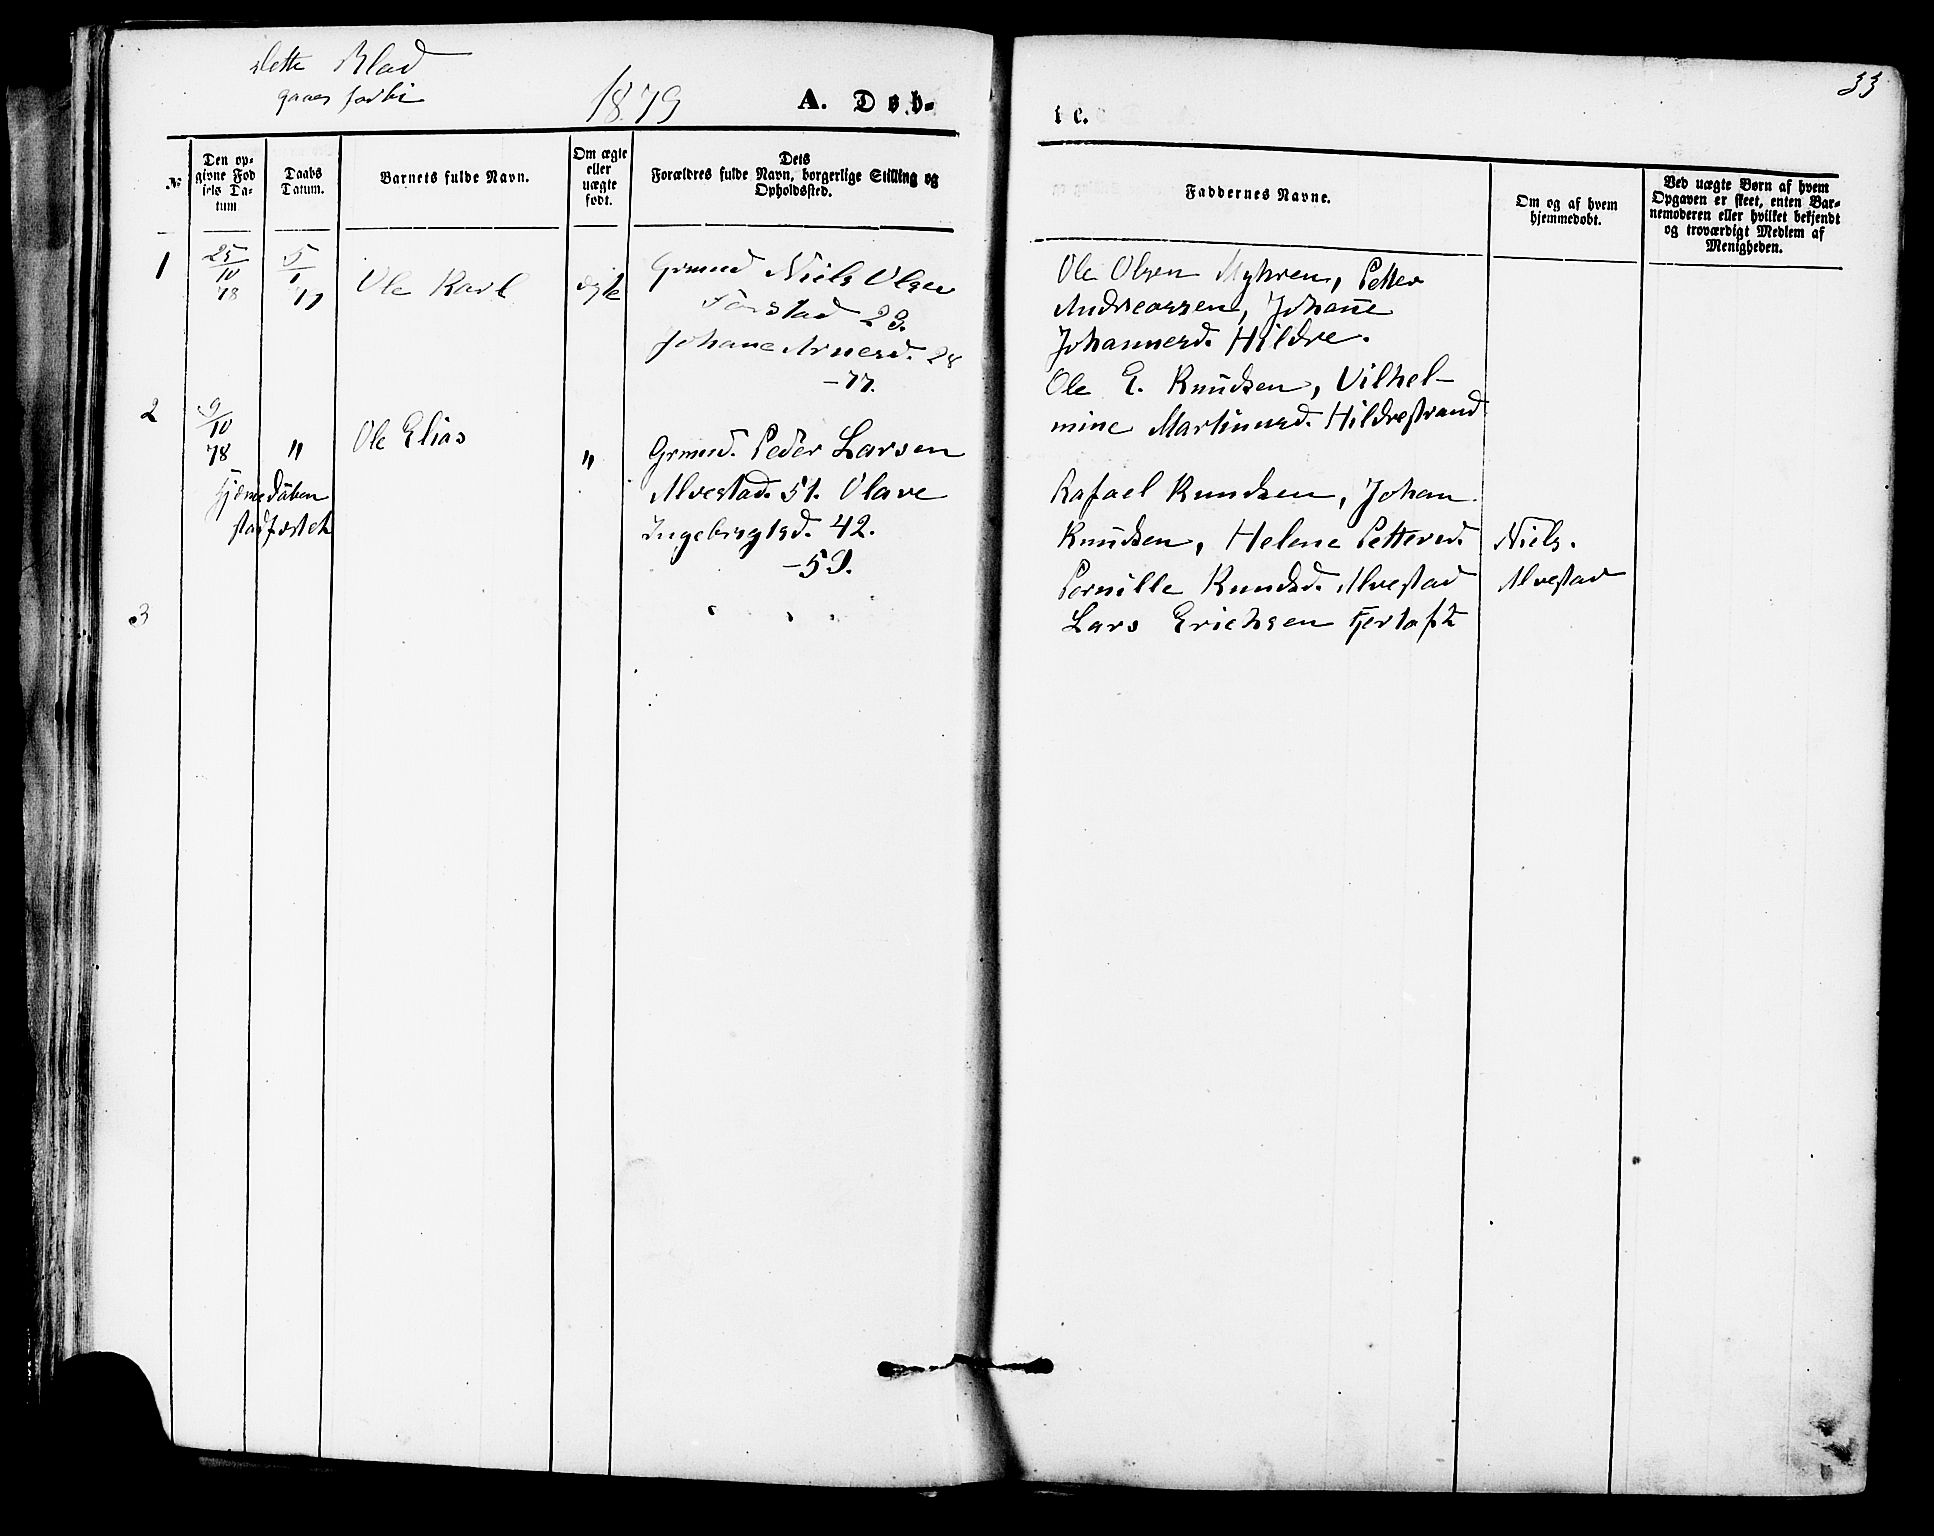 Dette Blad
gaaes forbi
1879
A. Døb-
te.
33
№
Den op-
givne Fød
sels Da-
tum
Daabs
Datum.
Barnets fulde Navn.
Om ægte
eller
uægte
født.
Dets
Forældres fulde Navn, borgerlige Stilling og
Opholdssted.
Faddernes Navne.
Om og af hvem
hjemmedøbt.
Ved uægte Børn af hvem
Opgaven er skeet, enten Bar-
nemoderen eller hvilket bekjendt
og troværdigt Medlem af
Menigheden.
1
25/10
78
5/1
79
Ole Karl
ægte
Grmnd Niels Olsen
29.
Johane Arnesd. 28
-77.
Ole Olsen Myhren, Petter
Andreassen, Johane
Johannesd. Hildre.
Ole E. Knudsen, Vilhel-
mine Martinusd. Hildrestrand
2
9/10
78
"
Hjemmedåben
stadfæstet
Ole Elias
"
Grmnd. Peder Larsen
Alvestad. 51. Olave
Ingebrigtsd. 42.
-59.
Rafael Knudsen, Johan
Knudsen, Helene Pettersd.
Pernille Knudsd. Alvestad
Lars Erichsen Fjertoft
Niels.
Alvestad
3